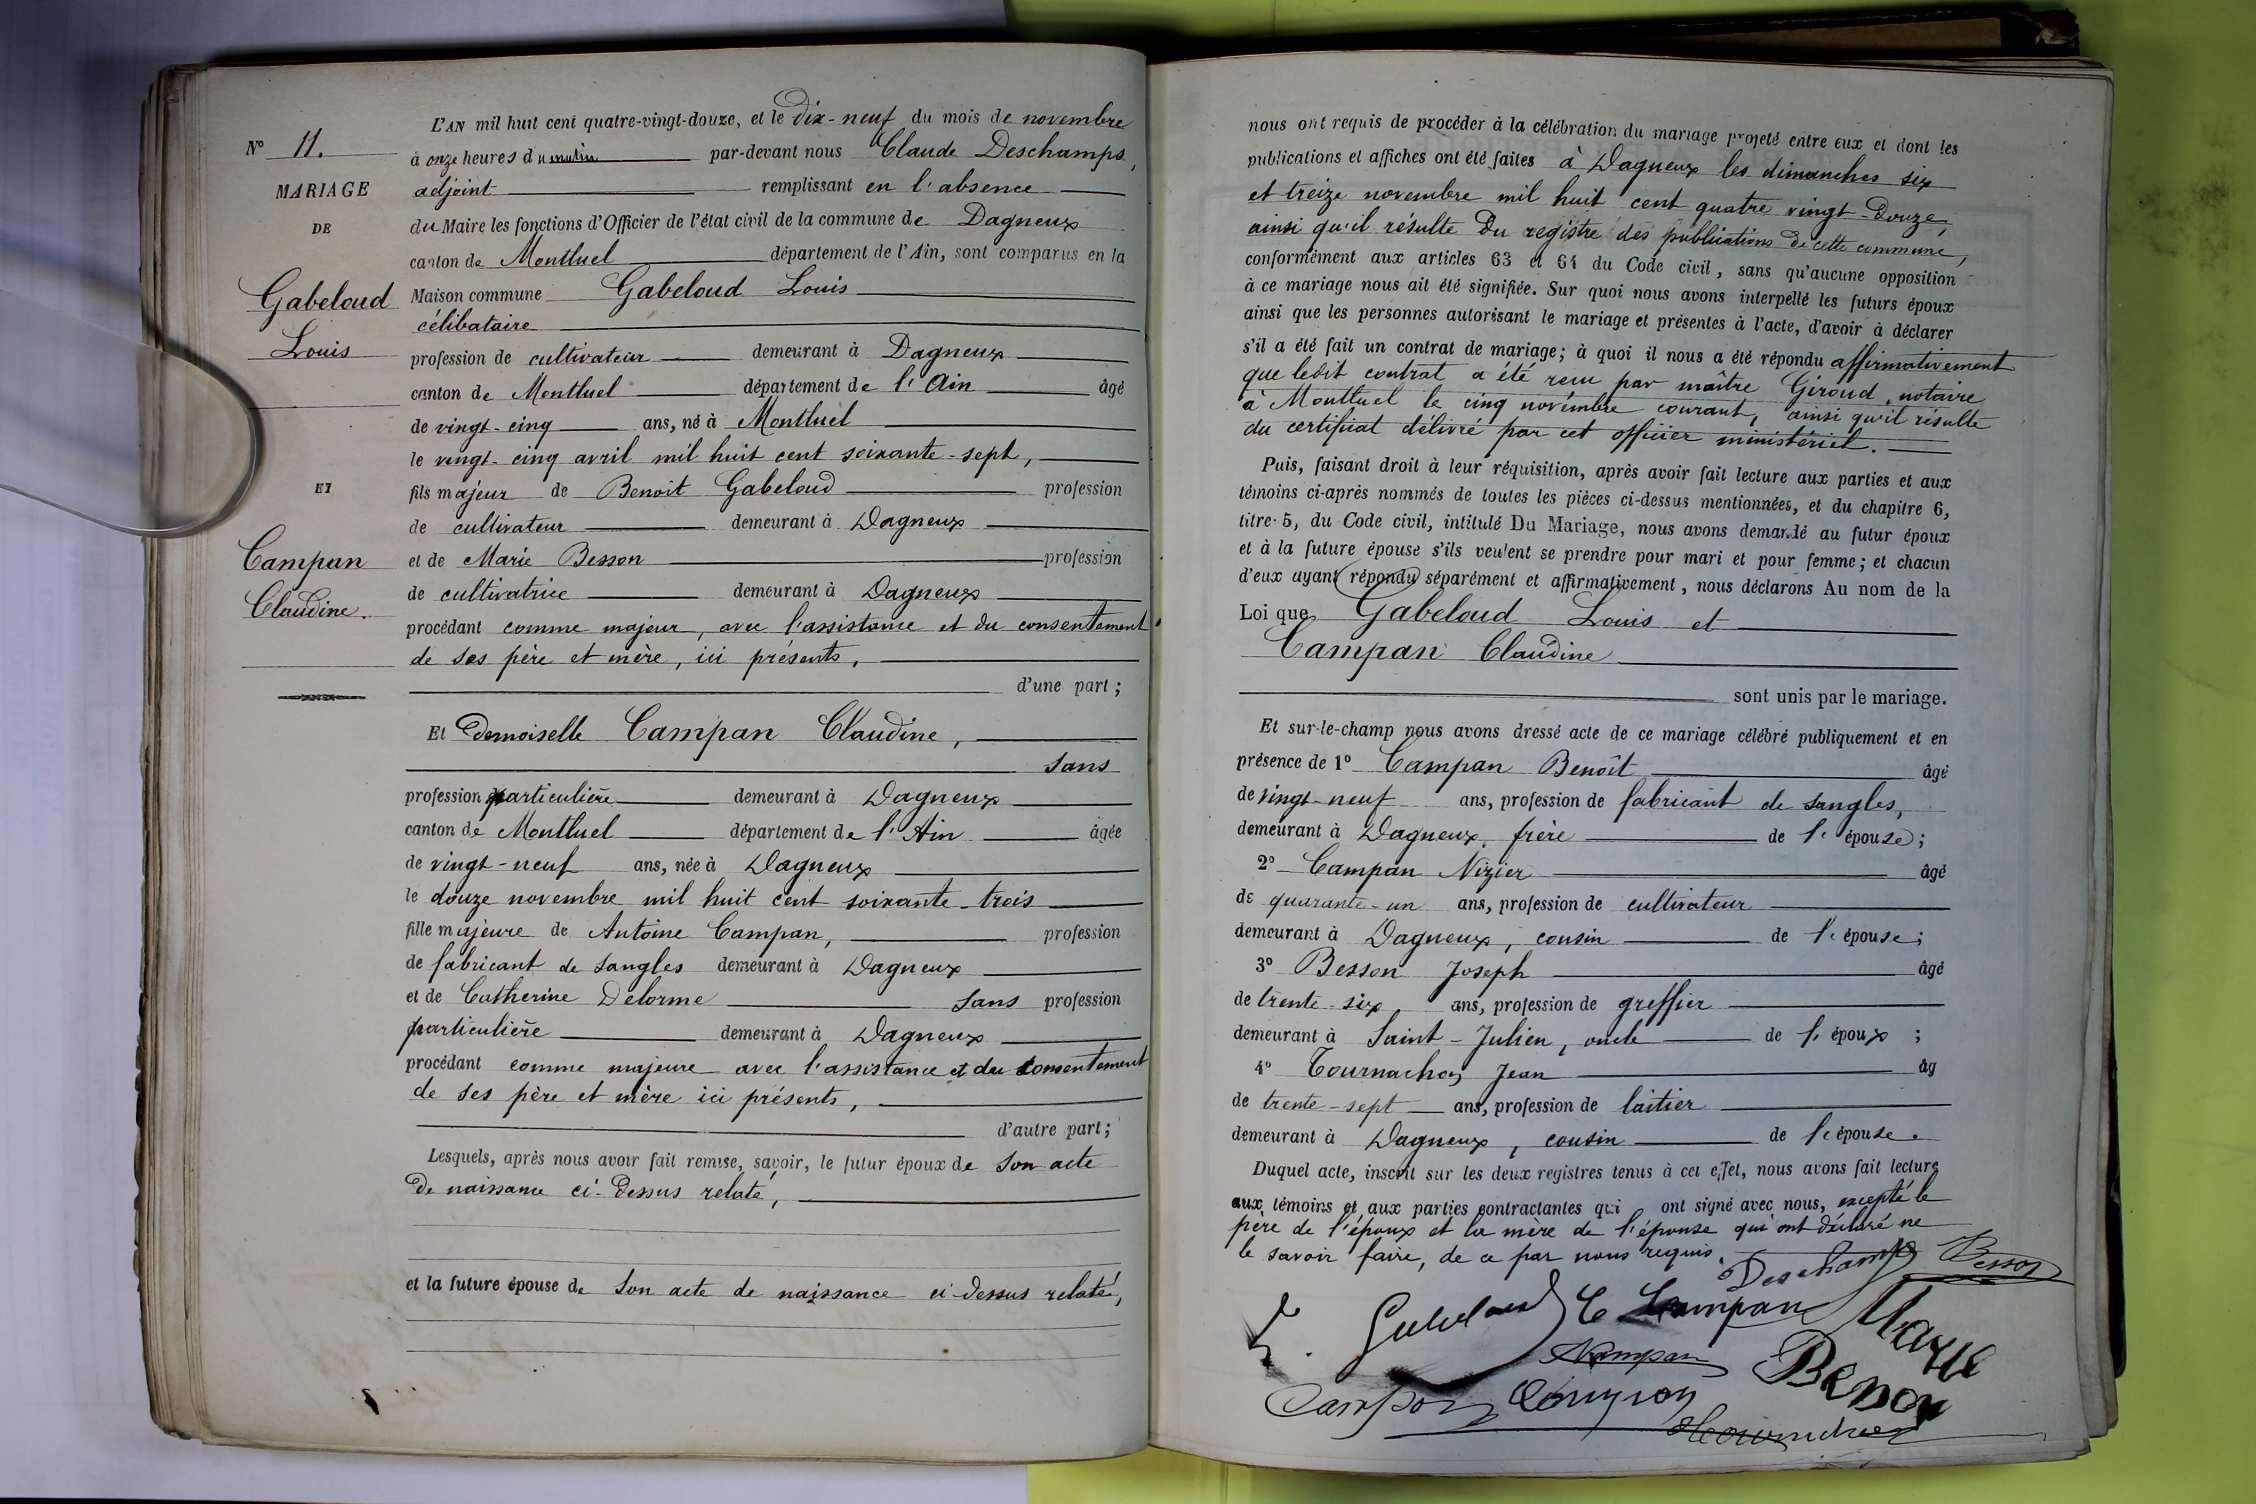 N° 11.
MARIAGE
DE
Gabeloud
Louis
ET
Campan
Claudine.
L'AN mil huit cent quatre-vingt-douze, et le Dix-neuf du mois de novembre
à onze heures du matin par-devant nous Claude Deschamps,
adjoint remplissant en l'absence
du Maire les fonctions d'Officier de l'état civil de la commune de Dagneux
canton de Montluel département de l'Ain, sont comparus en la
Maison commune Gabeloud Louis
célibataire
profession de cultivateur demeurant à Dagneux
canton de Montluel département de l'Ain âgé
de vingt-cinq ans, né à Montluel
le vingt-cinq avril mil huit cent soixante-sept,
fils majeur de Benoit Gabeloud profession
de cultivateur demeurant à Dagneux
et de Marie Besson profession
de cultivatrice demeurant à Dagneux
procédant comme majeur, avec l'assistance et du consentement
de ses père et mère, ici présents,
d'une part;
Et Demoiselle Campan Claudine,
sans
profession particulière demeurant à Dagneux
canton de Montluel département de l'Ain âgée
de vingt-neuf ans, née à Dagneux
le douze novembre mil huit cent soixante-trois
fille majeure de Antoine Campan, profession
de fabricant de sangles demeurant à Dagneux
et de Catherine Delorme sans profession
particulière demeurant à Dagneux
procédant comme majeure avec l'assistance et du consentement
de ses père et mère ici présents,
d'autre part;
Lesquels, après nous avoir fait remise, savoir, le futur époux de son acte
de naissance ci-dessus relaté,
et la future épouse de son acte de naissance ci-dessus relaté,
nous ont requis de procéder à la célébration du mariage projeté entre eux et dont les
publications et affiches ont été faites à Dagneux les dimanches six
et treize novembre mil huit cent quatre vingt-douze,
ainsi qu'il résulte du registre des publications de cette commune,
conformément aux articles 63 et 64 du Code civil, sans qu'aucune opposition
à ce mariage nous ait été signifiée. Sur quoi nous avons interpellé les futurs époux
ainsi que les personnes autorisant le mariage et présentes à l'acte, d'avoir à déclarer
s'il a été fait un contrat de mariage; à quoi il nous a été répondu affirmativement
que ledit contrat a été reçu par maître Giroud, notaire
à Montluel le cinq novembre courant, ainsi qu'il résulte
du certificat délivré par cet officier ministériel.
Puis, faisant droit à leur réquisition, après avoir fait lecture aux parties et aux
témoins ci-après nommés de toutes les pièces ci-dessus mentionnées, et du chapitre 6,
titre 5, du Code civil, intitulé Du Mariage, nous avons demandé au futur époux
et à la future épouse s'ils veulent se prendre pour mari et pour femme; et chacun
d'eux ayant répondu séparément et affirmativement, nous déclarons Au nom de la
Loi que Gabeloud Louis et
Campan Claudine
sont unis par le mariage.
Et sur-le-champ nous avons dressé acte de ce mariage célébré publiquement et en
présence de 1° Campan Benoît âgé
de vingt-neuf ans, profession de fabricant de sangles,
demeurant à Dagneux, frère de l'épouse;
2° Campan Nizier âgé
de quarante-un ans, profession de cultivateur
demeurant à Dagneux, cousin de l'épouse;
3° Besson Joseph âgé
de trente-six ans, profession de greffier
demeurant à Saint-Julien, oncle de l'époux;
4° Tournachon Jean âg
de trente-sept ans, profession de laitier
demeurant à Dagneux, cousin de l'épouse.
Duquel acte, inscrit sur les deux registres tenus à cet effet, nous avons fait lecture
aux témoins et aux parties contractantes qui ont signé avec nous, excepté le
père de l'époux et la mère de l'épouse qui ont déclaré ne
le savoir faire, de ce par nous requis.
Deschamps Besson
L. Gabeloud C Campan Marie
NCampan Beson
Campan